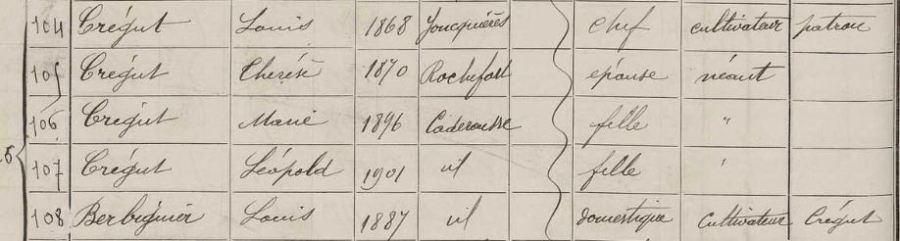 104 Crégut Louis 1868 Joncquières chef cultivateur patron
105 Crégut Thérèse 1870 Rochefort épouse néant
106 Crégut Marie 1896 Caderousse fille "
107 Crégut Léopold 1901 id fille "
108 Berbiguier Louis 1887 id domestique cultivateur Crégut